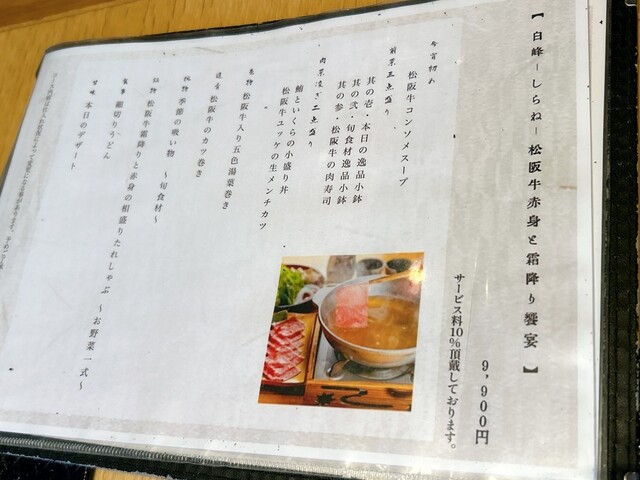 【白峰－しらね－松阪牛赤身と霜降り饗宴】
9,900円
サービス料10%頂戴しております。
松阪牛コンソメスープ
前菜三点盛り
其の壱・本日の逸品小鉢
其の弐・旬食材逸品小鉢
其の参・松阪牛の肉寿司
二点盛り
鮪といくらの小盛り丼
松阪牛ユッケの生メンチカツ
巻物 松阪牛入り五色湯葉巻き
松阪牛のカツ巻き
季節の吸い物 〜旬食材〜
松阪牛霜降りと赤身の相盛りたれしゃぶ 〜お野菜一式〜
細切りうどん
甘味 本日のデザート